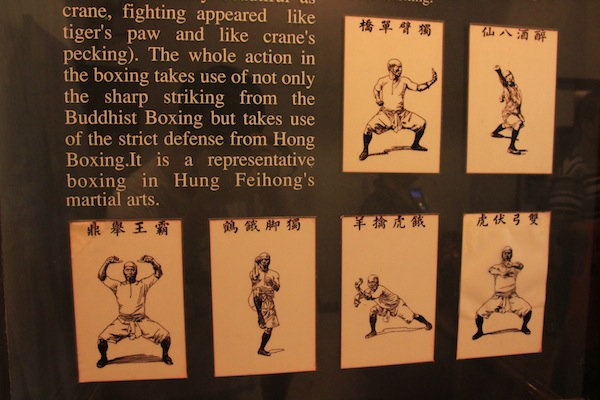 crane, fighting appeared like
tiger's paw and like crane's
pecking). The whole action in
the boxing takes use of not only
the sharp striking from the
Buddhist Boxing but takes use
of the strict defense from Hong
Boxing.It is a representative
boxing in Hung Feihong's
martial arts.
獨臂單橋
醉酒八仙
霸王舉鼎
獨脚餓鶴
餓虎擒羊
雙弓伏虎